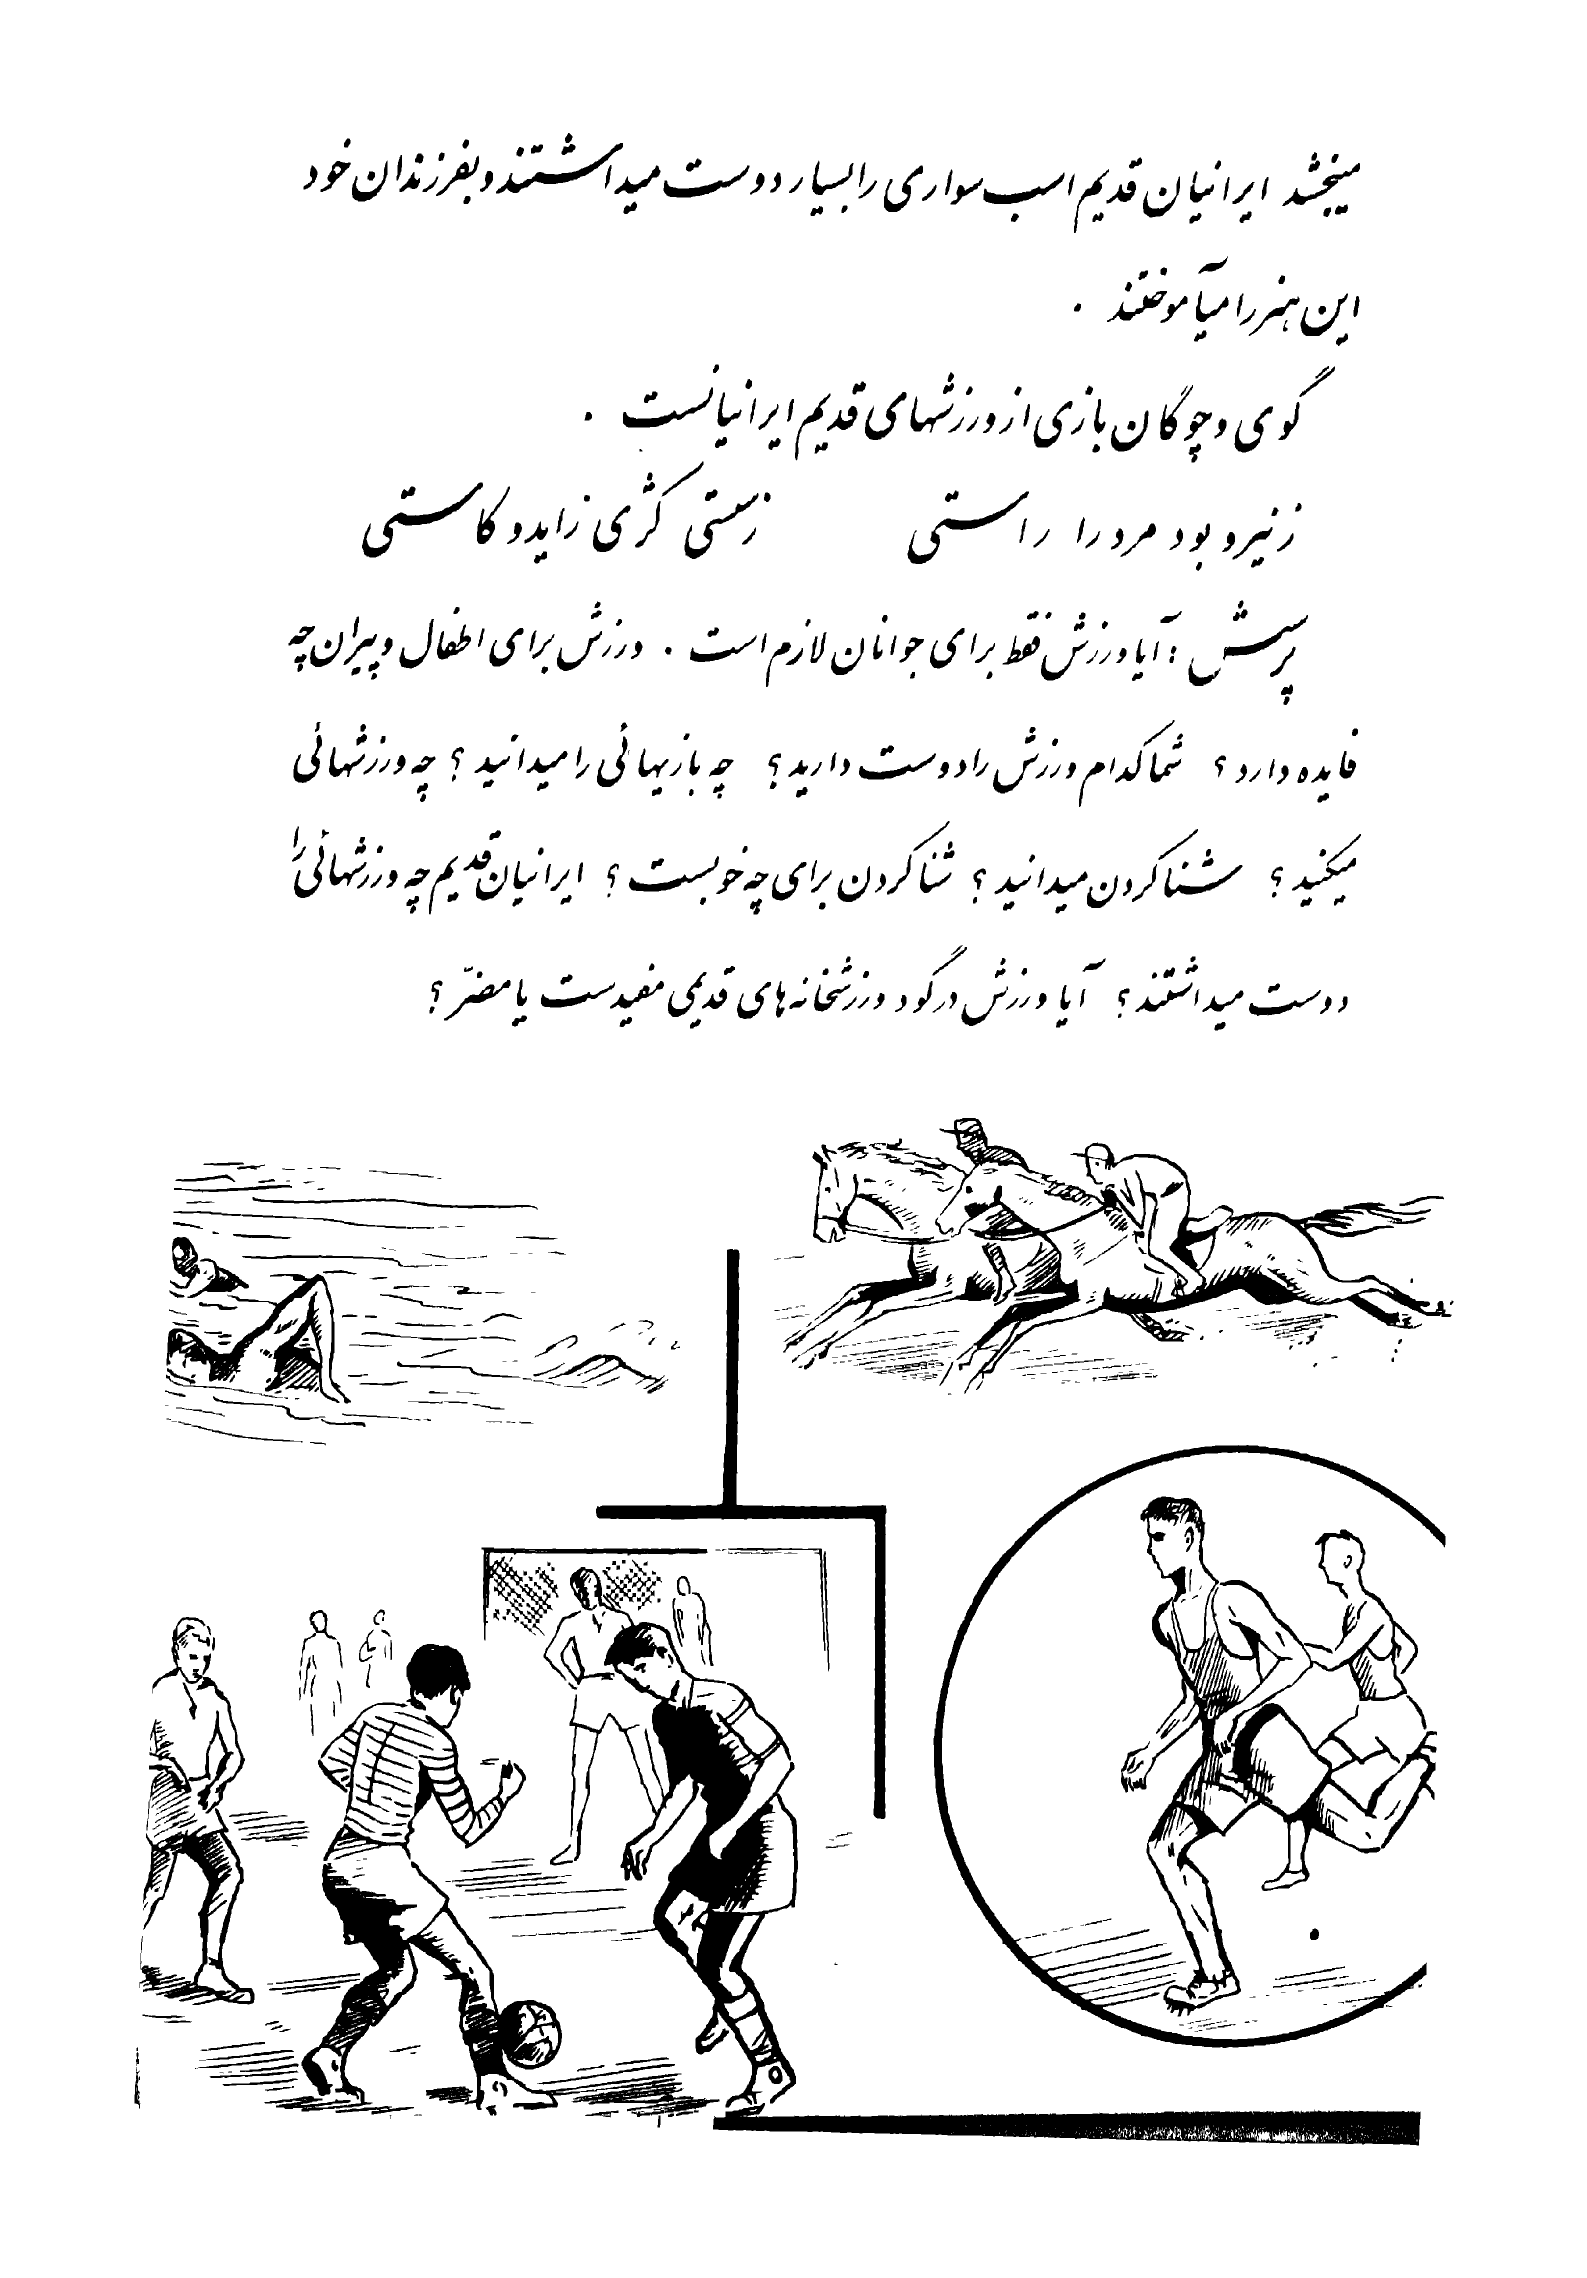 میبخشد ایرانیان قدیم اسب سواری را بسیار دوست میداشتند و بفرزندان خود
این هنر را میآموختند .
گوی و چوگان بازی از ورزشهای قدیم ایرانیانست .
ز نیرو بود مرد را راستی ز سستی کژی زاید و کاستی
پرسش : آیا ورزش فقط برای جوانان لازم است . ورزش برای اطفال و پیران چه
فایده دارد ؟ شما کدام ورزش را دوست دارید ؟ چه بازیهائی را میدانید ؟ چه ورزشهائی
میکنید ؟ شنا کردن میدانید ؟ شنا کردن برای چه خوبست ؟ ایرانیان قدیم چه ورزشهائی را
دوست میداشتند ؟ آیا ورزش در گود ورزشخانه های قدیمی مفیدست یا مضرّ ؟